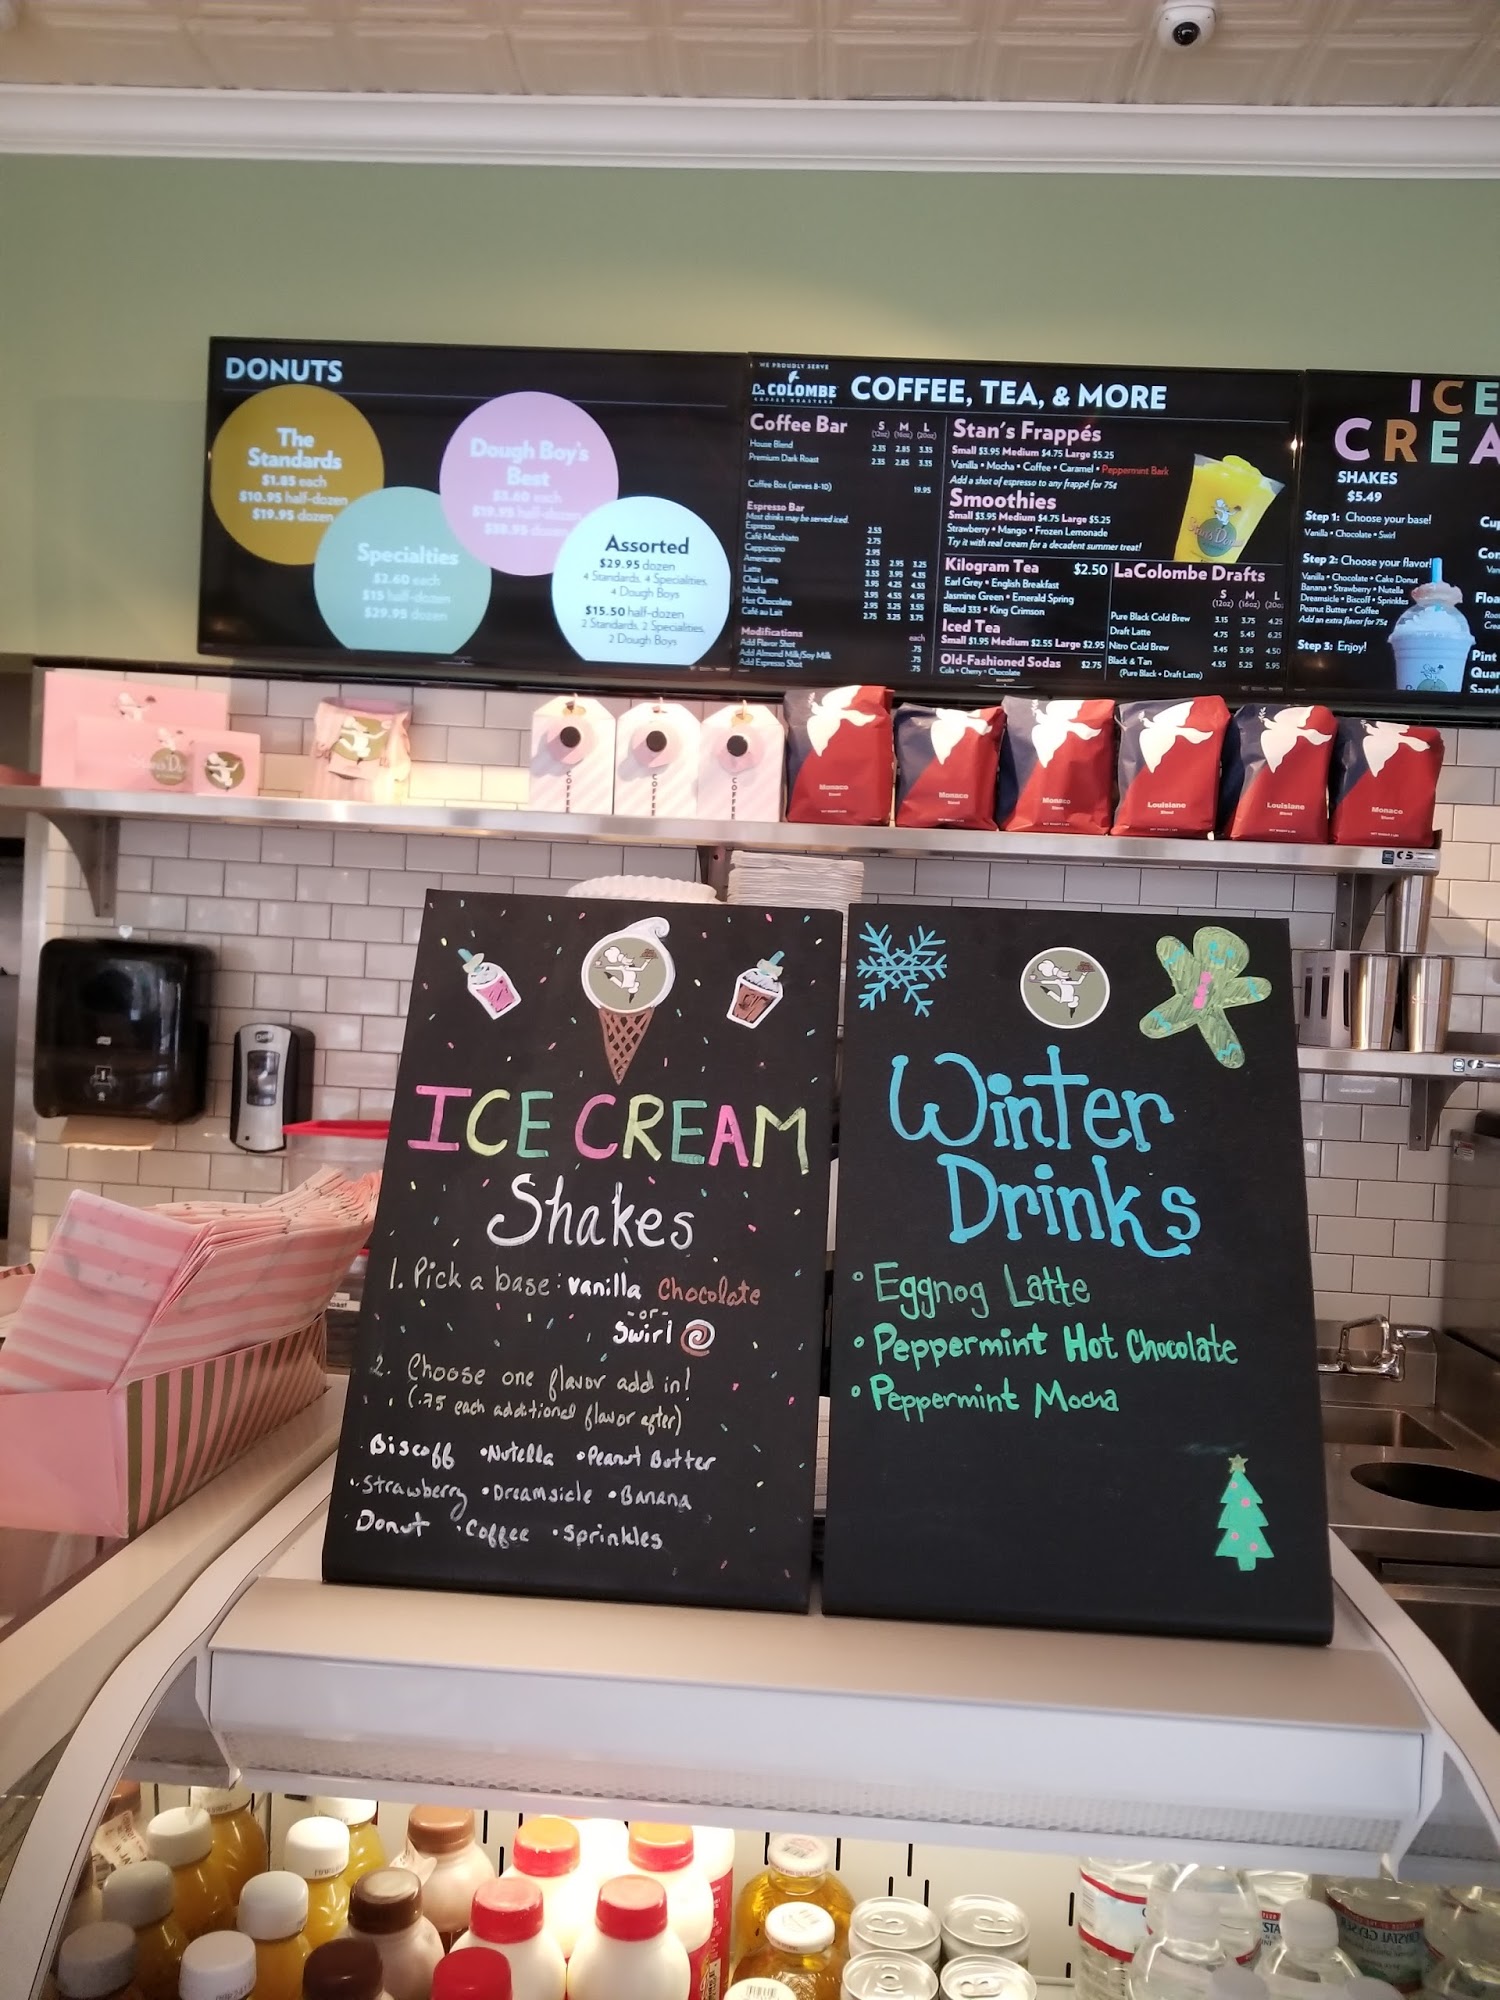 DONUTS
The
Standards
$1.85 each
$10.95 half-dozen
$19.95 dozen
Specialties
$2.60 each
$15 half-dozen
$29.95 dozen
Dough Boy's
Best
$3.60 each
$19.95 half-dozen
$38.95 dozen
Assorted
$29.95 dozen
4 Standards, 4 Specialities,
4 Dough Boys
$15.50 half-dozen
2 Standards, 2 Specialities,
2 Dough Boys
WE PROUDLY SERVE
La COLOMBE
COFFEE ROASTERS
COFFEE, TEA, & MORE
Coffee Bar S M L
(12oz) (16oz) (20oz)
House Blend 2.35 2.85 3.35
Premium Dark Roast 2.35 2.85 3.35
Coffee Box (serves 8-10) 19.95
Espresso Bar
Most drinks may be served iced.
Espresso 2.55
Café Macchiato 2.75
Cappuccino 2.95
Americano 2.55 2.95 3.25
Latte 3.55 3.95 4.35
Chai Latte 3.95 4.25 4.55
Mocha 3.95 4.55 4.95
Hot Chocolate 2.95 3.25 3.55
Café au Lait 2.75 3.25 3.75
Modifications each
Add Flavor Shot .75
Add Almond Milk/Soy Milk .75
Add Espresso Shot .75
Stan's Frappés
Small $3.95 Medium $4.75 Large $5.25
Vanilla • Mocha • Coffee • Caramel • Peppermint Bark
Add a shot of espresso to any frappé for 75¢
Smoothies
Small $3.95 Medium $4.75 Large $5.25
Strawberry • Mango • Frozen Lemonade
Try it with real cream for a decadent summer treat!
Kilogram Tea $2.50
Earl Grey • English Breakfast
Jasmine Green • Emerald Spring
Blend 333 • King Crimson
Iced Tea
Small $1.95 Medium $2.55 Large $2.95
Old-Fashioned Sodas $2.75
Cola • Cherry • Chocolate
LaColombe Drafts
S M L
(12oz) (16oz) (20oz)
Pure Black Cold Brew 3.15 3.75 4.25
Draft Latte 4.75 5.45 6.25
Nitro Cold Brew 3.45 3.95 4.50
Black & Tan 4.55 5.25 5.95
(Pure Black • Draft Latte)
ICE
CREA
SHAKES
$5.49
Step 1: Choose your base!
Vanilla • Chocolate • Swirl
Step 2: Choose your flavor!
Vanilla • Chocolate • Cake Donut
Banana • Strawberry • Nutella
Dreamsicle • Biscoff • Sprinkles
Peanut Butter • Coffee
Add an extra flavor for 75¢
Step 3: Enjoy!
Cup
Con
Floa
Pint
Quar
Sand
COFFEE
COFFEE
COFFEE
Monaco
Blend
Monaco
Blend
Monaco
Blend
Louisiane
Blend
Louisiane
Blend
Monaco
Blend
ICE CREAM
Shakes
1. Pick a base: vanilla Chocolate
-or-
Swirl
2. Choose one flavor add in!
(.75 each additional flavor after)
Biscoff •Nutella •Peanut Butter
•Strawberry •Dreamsicle •Banana
Donut •Coffee •Sprinkles
Winter
Drinks
• Eggnog Latte
• Peppermint Hot Chocolate
• Peppermint Mocha
CRYSTAL GEYSER